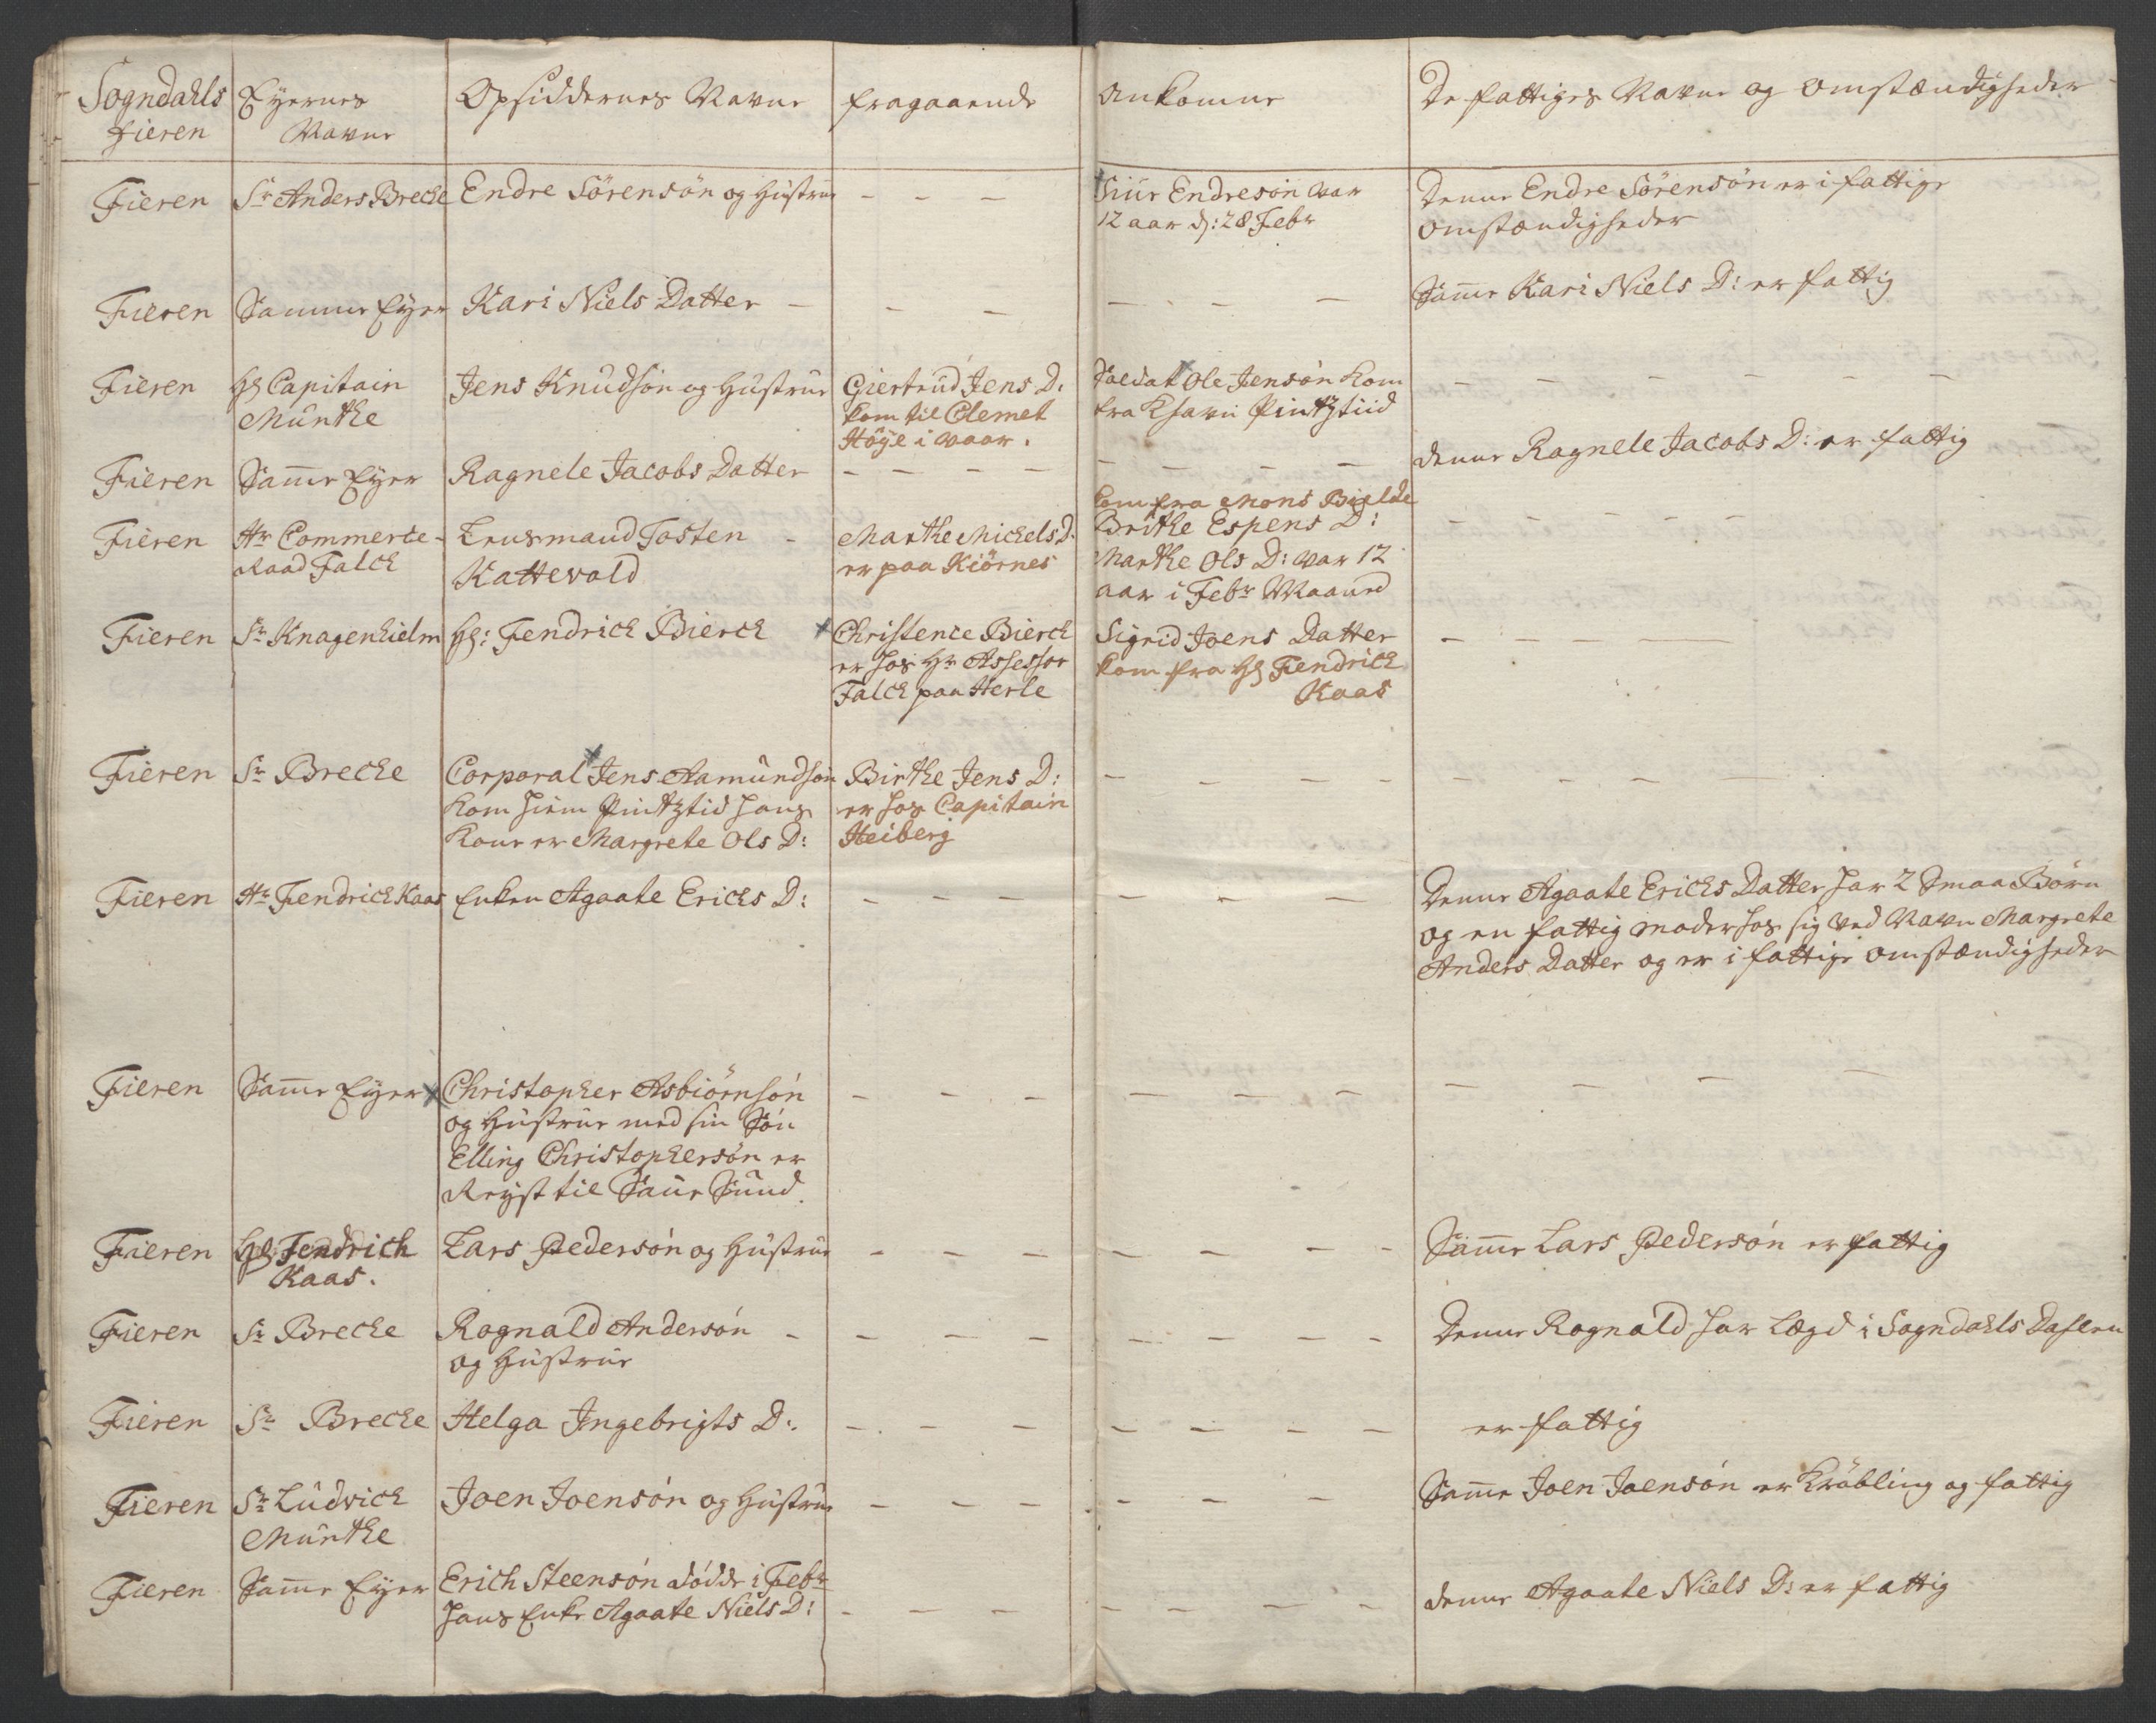 Sogndahls Eyernes Opsiddernes Navne fragaaende ankomne De fattiges Navne og omstændigheder
Fieren Navne
Fieren Sr Anders Brecke Endre Sörensön og Hustrue - - - Siur Endresön var Denne Endre Sörensön er i fattige
12 aar d: 28 Febr omstændigheder
Fieren Samme Eyer Kari Niels Datter - - - - - - Samme Kari Niels D: er fattig
Fieren Hr Capitain Jens Knudsön og Hustrue Giertrud Jens D. Soldat Ole Jensön kom - - - - - -
Munthe kom til Clemet fra Khavn Pintztiid
Höye i vaar.
Fieren Samme Eyer Ragnele Jacobs Datter - - - - - - - - denne Ragnele Jacobs D: er fattig
kom fra Mons Bielde
Fieren Hr Commerce- Lensmand Tosten - Marthe Mickels D. Brithe Espens D: - - - - - -
Raad Falck Kattevold er paa Kiörnes Marthe Ols D: var 12
aar i Febr Maaned
Fieren Sr Knagenhielm Hr: Fendrick Bierck x Christence Bierck Sigrid Joens Datter - - - - -
er hos Hr Assessor kom fra Hr Fendrick
Falck paa Herle Kaas
Fieren Sr Brecke Corporal Jens Aamundsön Birthe Jens D: - - - - - - - -
kom hiem Pintztid hans er hos Capitain
Kone er Margrete Ols D: Heiberg
Fieren Hr Fendrick Kaas Enken Agaate Ericks D: - - - - - - Denne Agaate Ericks Datter har 2 Smaa Börn
og en fattig moder hos sig ved Navn Margrete
Anders Datter og er i fattige omstændigheder
Fieren Samme Eyer x Christopher Asbiörnsön - - - - - - - - - -
og Hustrue med sin Sön
Elling Christophersön er
Reyst til Saue Sund.
Fieren Hr Fendrich Lars Pedersön og Hustrue - - - - - - - Samme Lars Pedersön er fattig
Kaas.
Fieren Sr Brecke Rognald Andersön - - - - - - - - Denne Rognald har Lægd i Sogndahls Dahlen
og Hustrue
Fieren Sr Brecke Helga Ingebrigts D: - - - - - - - er fattig
Fieren Sr Ludvick Joen Joensön og Hustrue - - - - - - Samme Joen Joensön er Kröbling og fattig
Munthe
Fieren Samme Eyer Erich Steensön dödde i Febr
hans Enke Agaate Niels D: - - - - - - - denne Agaate Niels D: er fattig